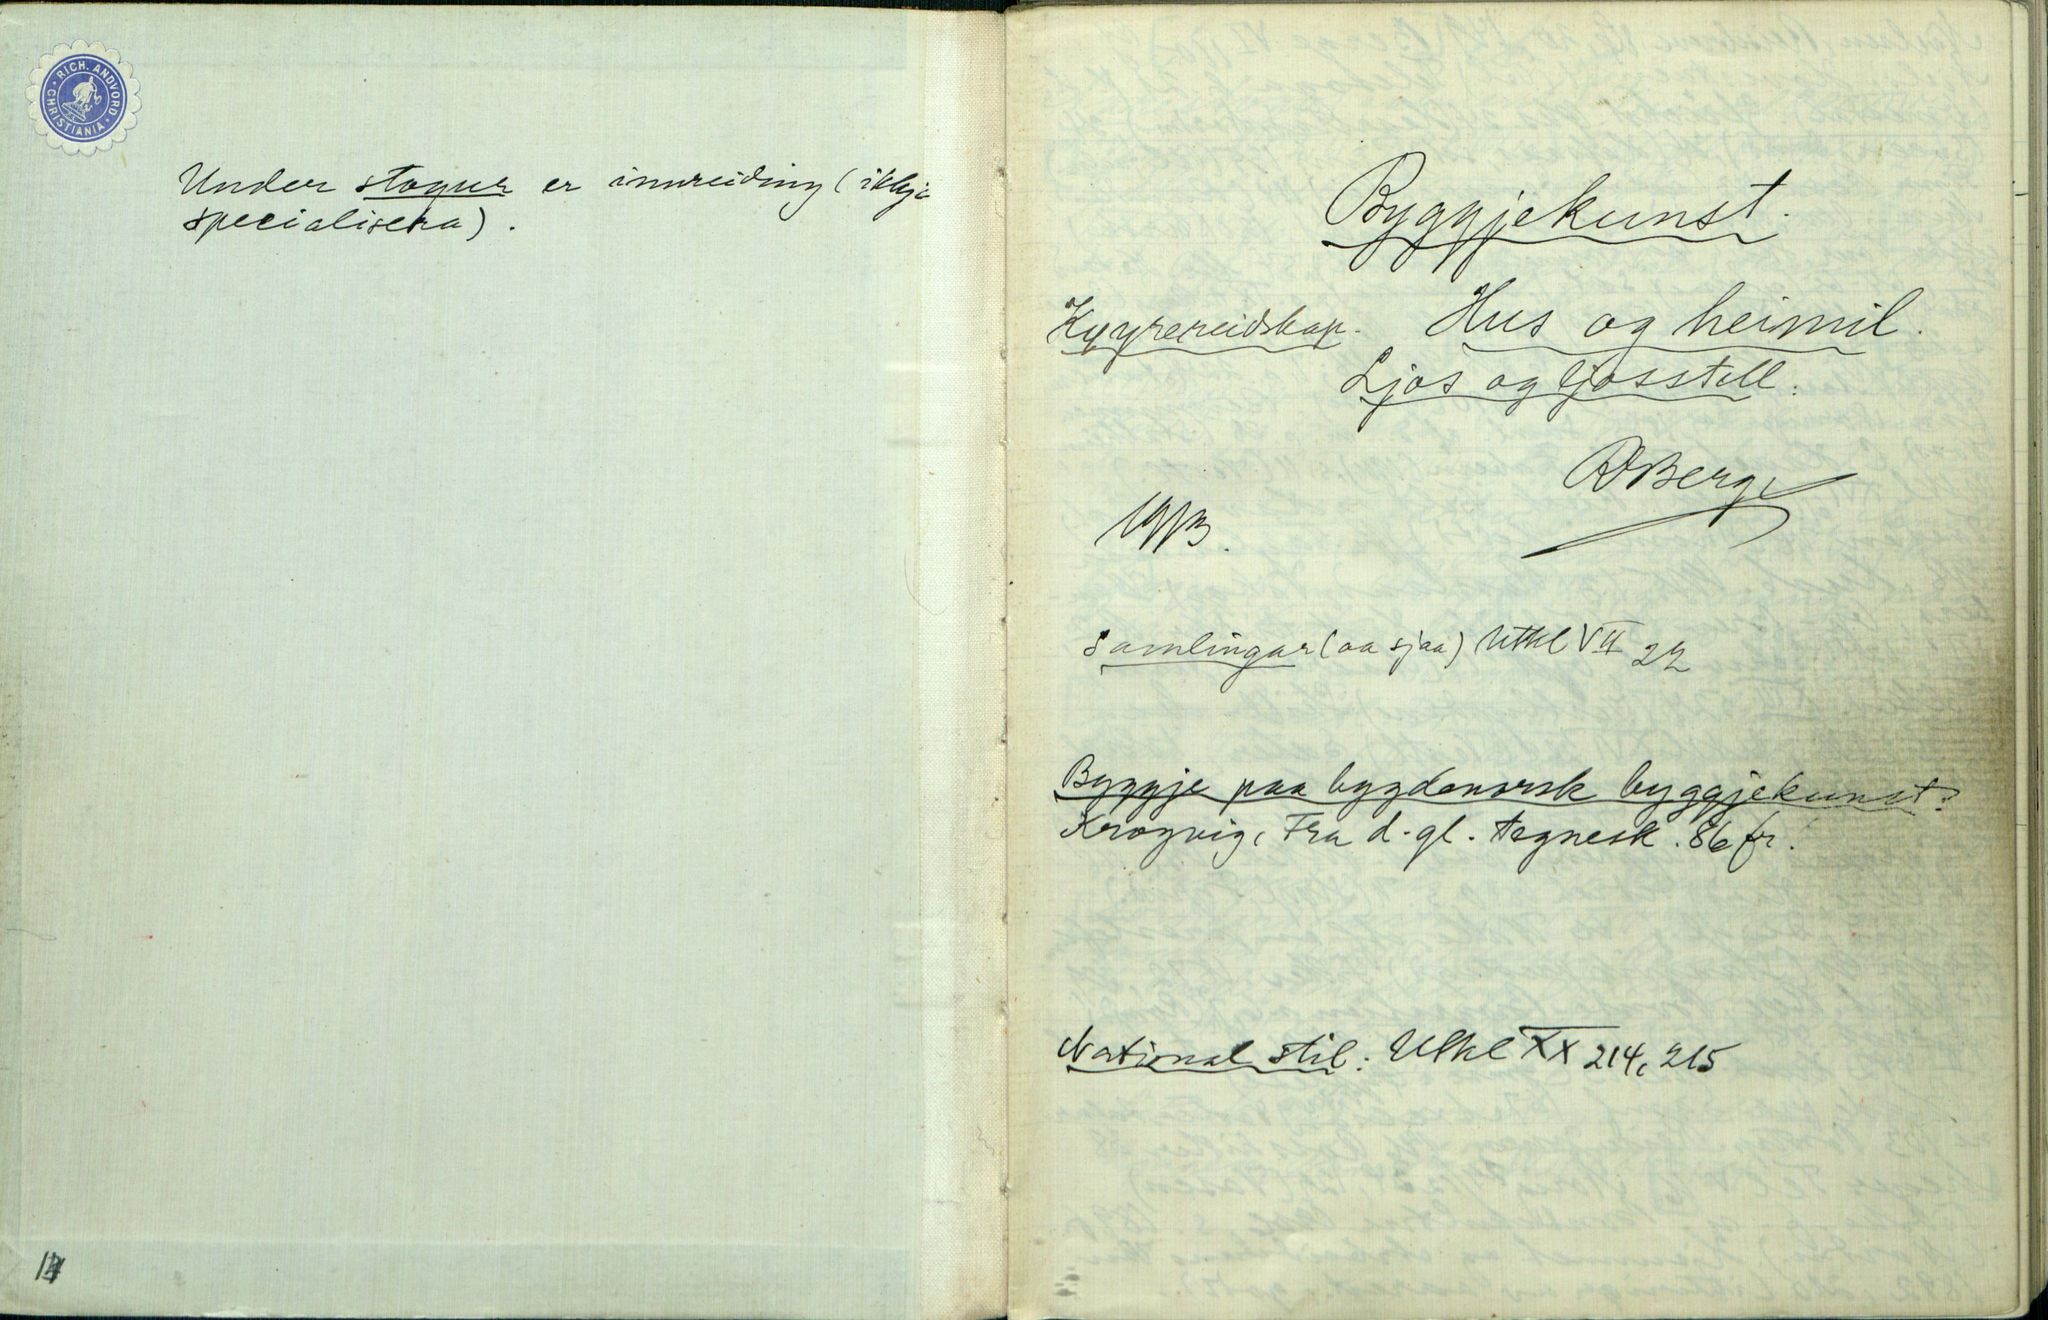 RICH. ANDVORD
CHRISTIANIA
Under stogur er innreiding (ikkje
specialisera).
14
Byggjekunst.
Kyyrereidskap. Hus og heimil.
Ljos og ljosstell.
RBerge
1913.
Samlingar (aa sjaa) Utkl VII 22
Byggje paa bygdenorsk byggjekunst:
Krogvig, Fra d. gl. tegnesk. 86 fr.
National stil: Utkl XX 214, 215